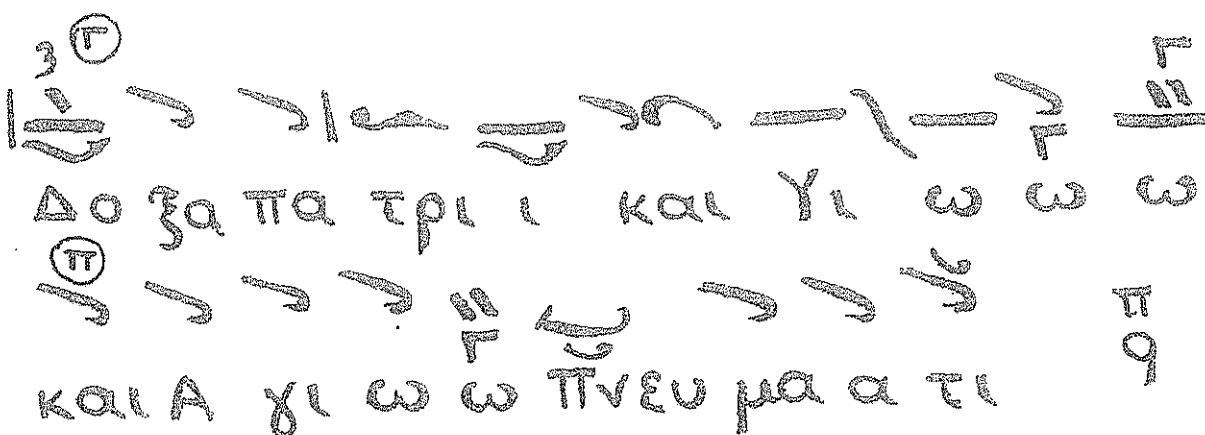 Δο ξα πα τρι ι και Υι ω ω ω
και Α γι ω ω Πνευ μα α τι